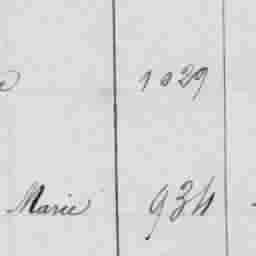 1029
Marie 934